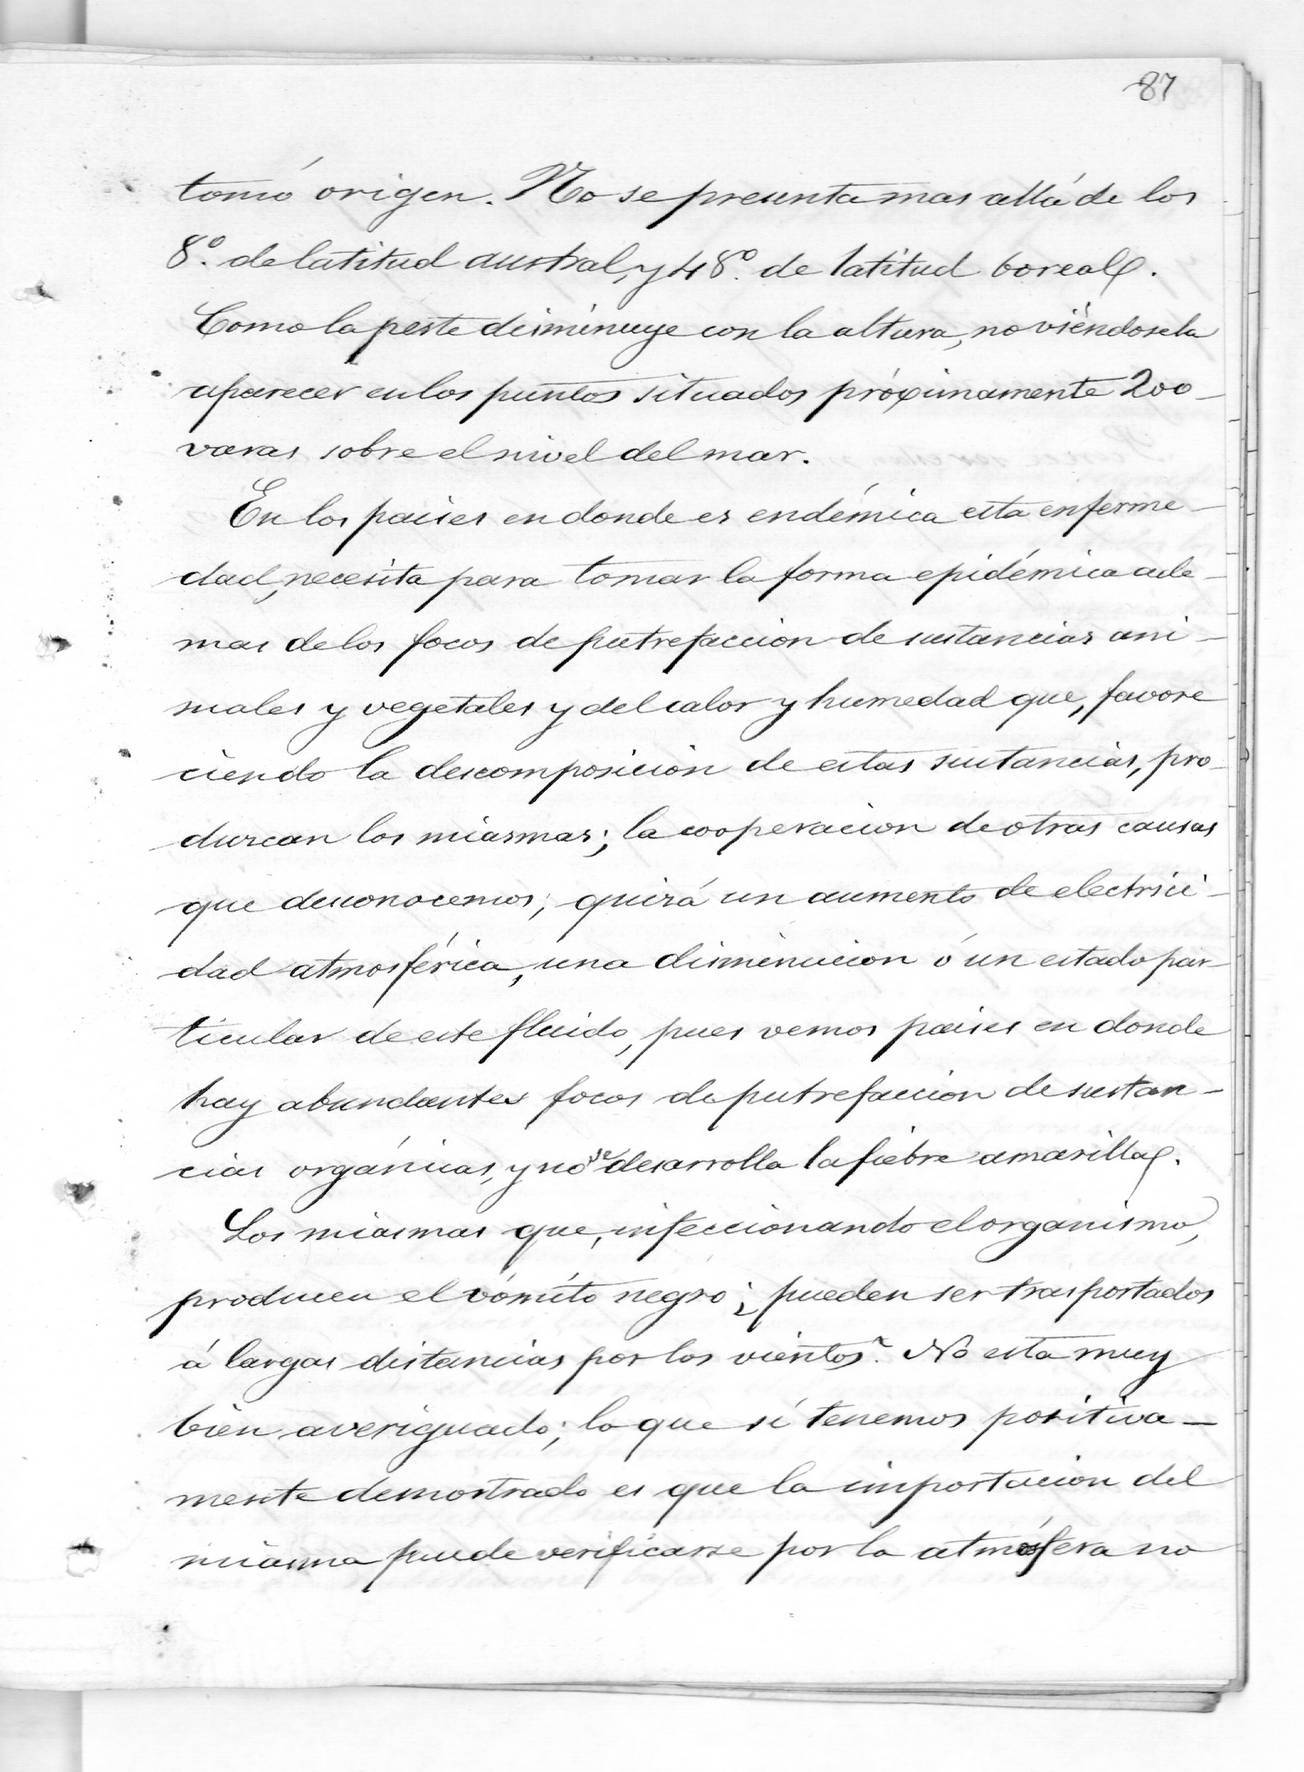 87
tomó origen. No se presenta mas allá de los
8º. de latitud austral, y 48º. de latitud boreal.
Como la peste deiminuye con la altura, no viéndosela
aparecer en los puntos situados próximamente 200
varas sobre el nivel del mar.
En los paises en donde es endémica esta enferme-
dad, necesita para tomar la forma epidémica ade-
mas de los focos de putrefaccion de sustancias ani-
males y vegetales y del calor y humedad que, favore
ciendo la descomposicion de estas sustancias, pro-
duzcan los miasmas; la cooperacion de otras causas
que desconocemos; quizá un aumento de electrici-
dad atmosférica, una disminucion ó un estado par-
ticular de este fluido, pues vemos paises en donde
hay abundantes focos de putrefaccion de sustan-
cias orgánicas, y no se desarrolla la fiebre amarilla.
Los miasmas que, infeccionando el organismo,
producen el vómito negro ¿ pueden ser trasportados
á largas distancias por los vientos? No esta muy
bien averiguado; lo que sí tenemos positiva-
mente demostrado es que la importacion del
miasma puede verificarse por la atmósfera no